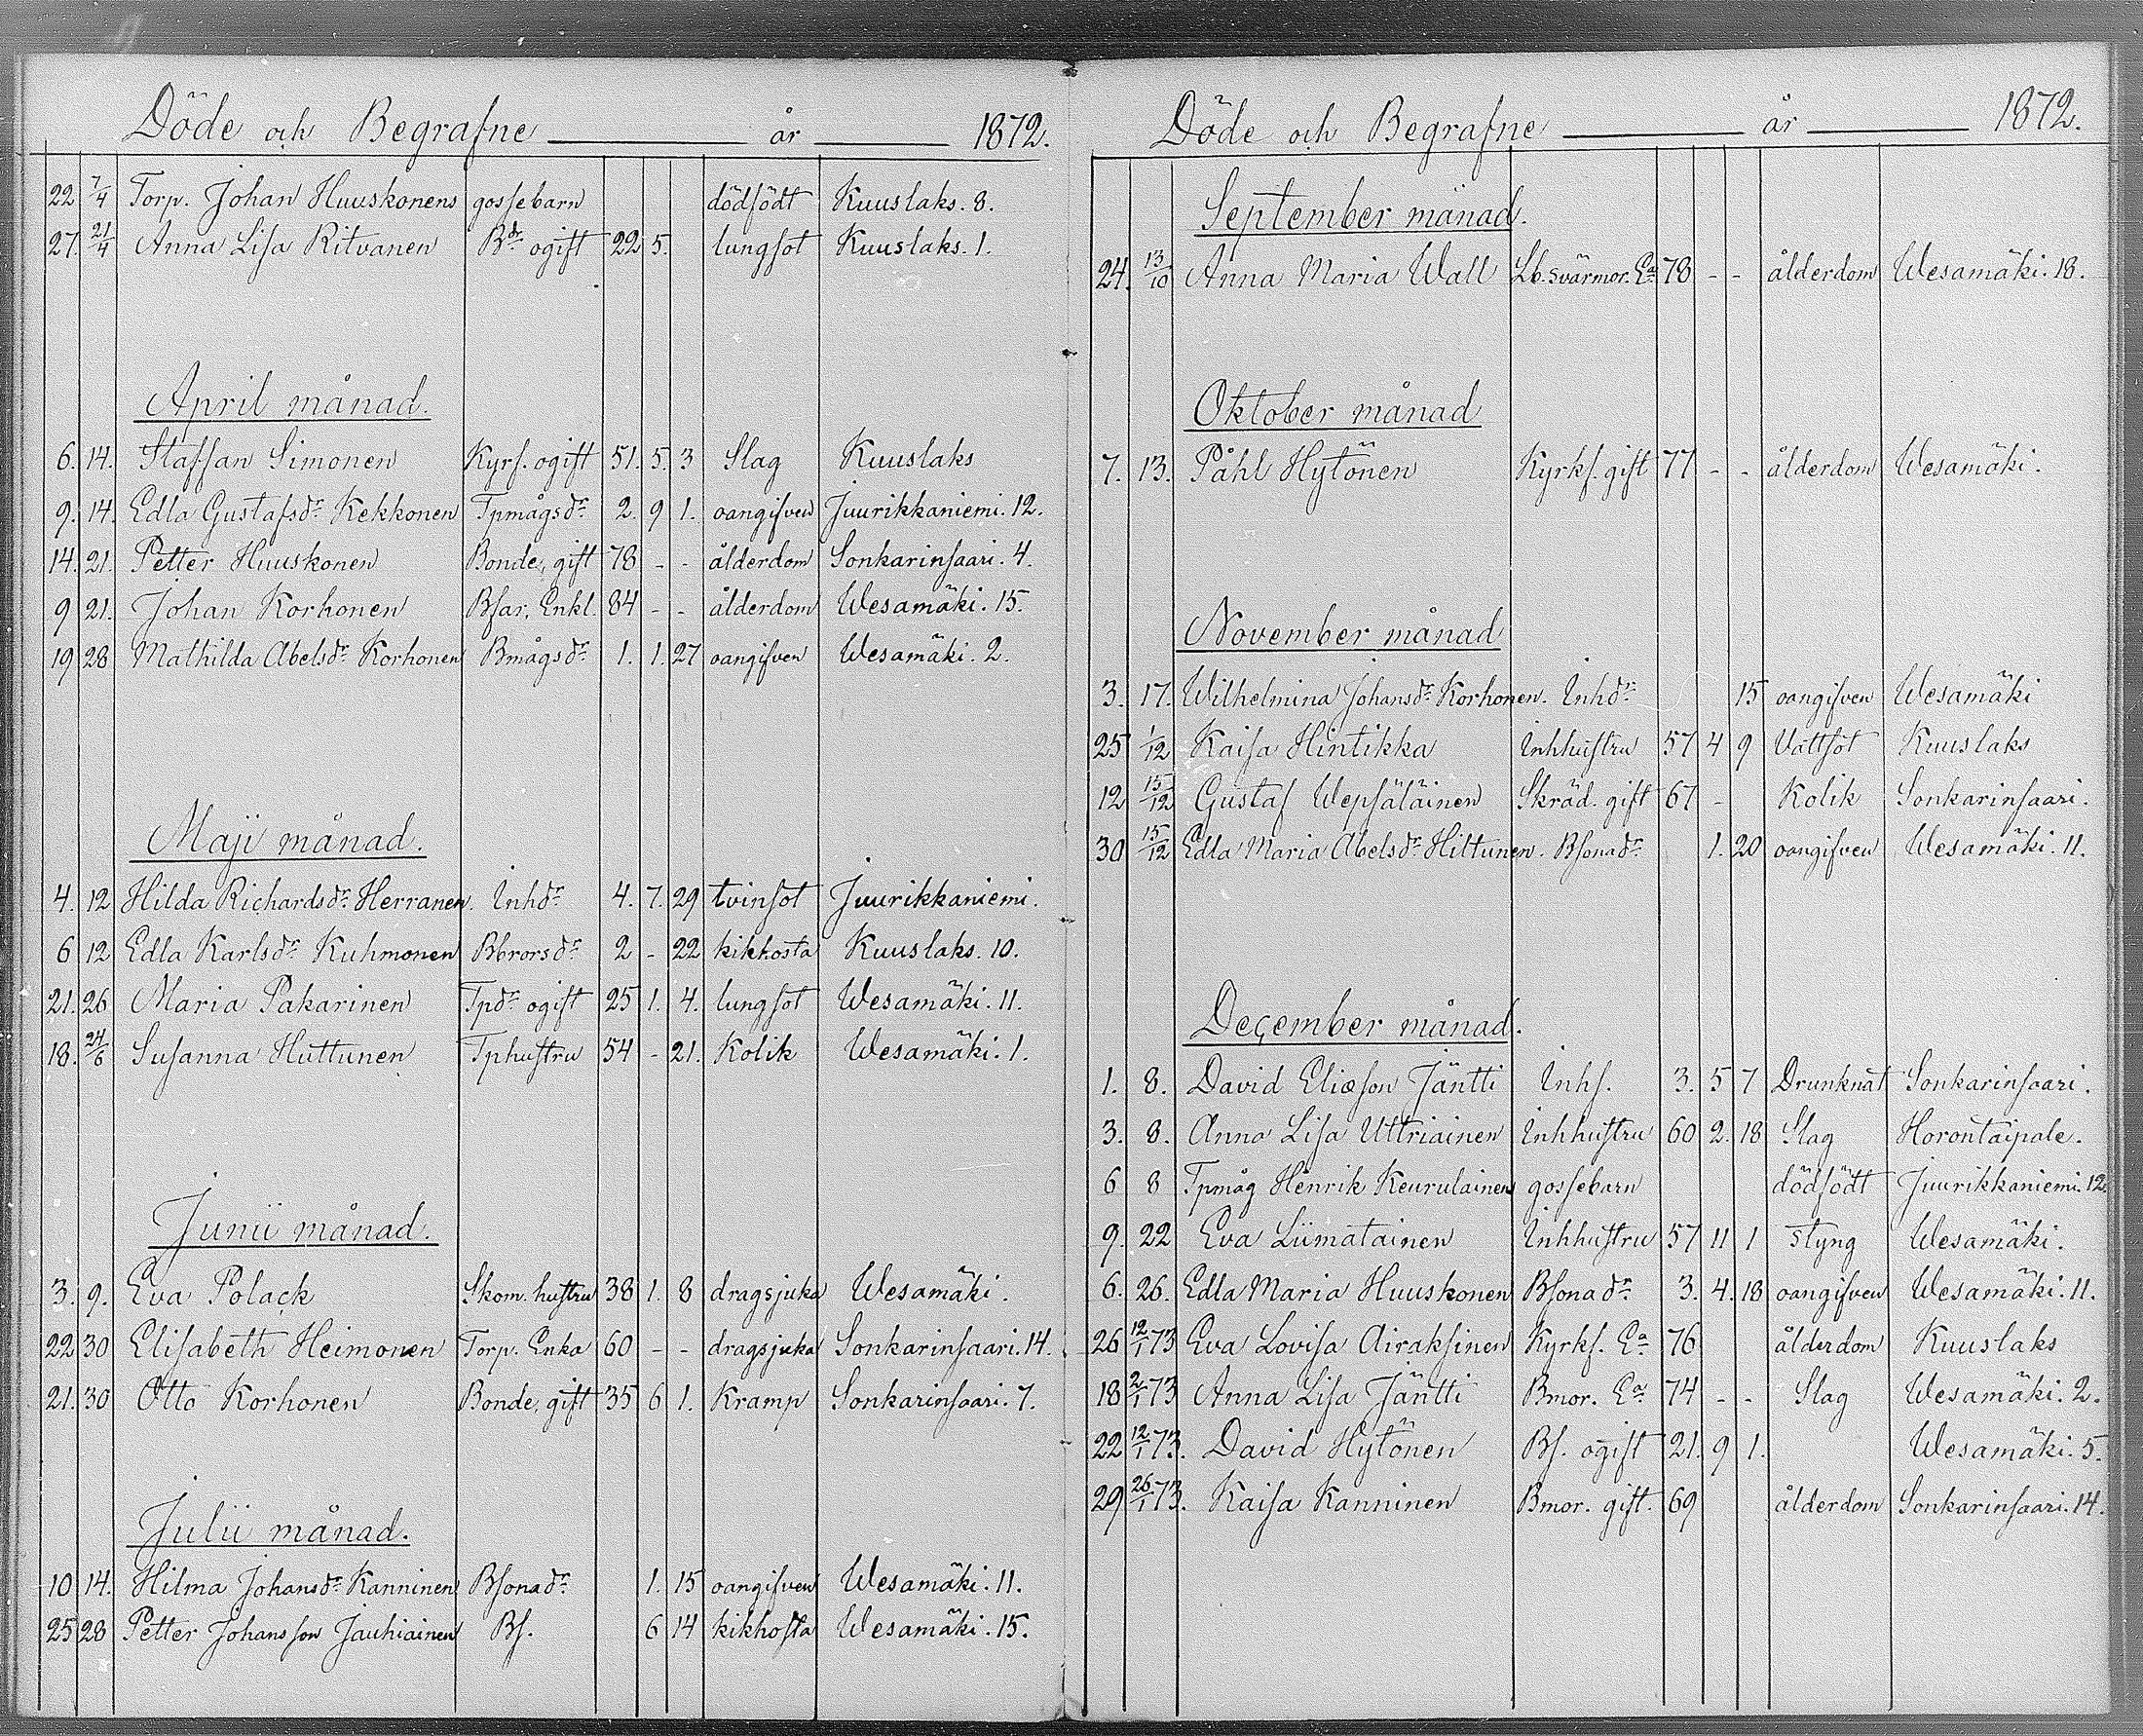 Döde och Begrafne ——— år ——— 1872.
22 7/4 Torp. Johan Huuskonens gossebarn dödfödt Kuuslaks. 8.
27. 21/4 Anna Lisa Ritvanen Bdr ogift 22 5. lungsot Kuuslaks. 1.
April månad.
6. 14. Staffan Simonen Kyrs. ogift 51. 5. 3 Slag Kuuslaks
9. 14. Edla Gustafsdr Kekkonen Tpmågsdr 2. 9 1. oangifven Juurikkaniemi. 12.
14. 21. Petter Huuskonen Bonde, gift 78 - - ålderdom Sonkarinsaari. 4.
9 21. Johan Korhonen Bfar, Enkl. 84 - - ålderdom Wesamäki. 15.
19 28 Mathilda Abelsdr Korhonen Bmågsdr 1. 1. 27 oangifven Wesamäki. 2.
Maji månad.
4. 12 Hilda Richardsdr Herranen. Inhdr 4. 7. 29 tvinsot Juurikkaniemi.
6 12 Edla Karlsdr Kuhmonen Bbrorsdr 2 - 22 kikhosta Kuuslaks. 10.
21. 26 Maria Pakarinen Tpdr ogift 25 1. 4. lungsot Wesamäki. 11.
18. 24/6 Susanna Huttunen Tphustru 54 - 21. Kolik Wesamäki. 1.
Junii månad.
3. 9. Eva Polack Skom. hustru 38 1. 8 dragsjuka Wesamäki.
22 30 Elisabeth Heimonen Torp. Enka 60 - - dragsjuka Sonkarinsaari. 14.
21. 30 Otto Korhonen Bonde, gift 35 6 1. Kramp Sonkarinsaari. 7.
Julii månad.
10 14. Hilma Johansdr Kanninen Bsonadr 1. 15 oangifven Wesamäki. 11.
25 28 Petter Johansson Jauhiainen Bs. 6 14 kikhosta Wesamäki. 15.
Döde och Begrafne ——— år ——— 1872.
September månad.
24. 13/10 Anna Maria Wall Lb. svärmor. Ea 78 - - ålderdom Wesamäki. 18.
Oktober månad
7. 13. Påhl Hytönen Kyrks. gift 77 - - ålderdom Wesamäki.
November månad
3. 17. Wilhelmina Johansdr Korhonen. Inhdr 15 oangifven Wesamäki
25 1/12 Kaisa Hintikka Inhhustru 57 4 9 Vattsot Kuuslaks
12 15/12 Gustaf Wepsäläinen Skräd. gift 67 - Kolik Sonkarinsaari.
30 15/12 Edla Maria Abelsdr Hiltunen. Bsonadr 1. 20 oangifven Wesamäki. 11.
December månad.
1. 8. David Eliæson Jäntti Inhs. 3. 5 7 Drunknat Sonkarinsaari.
3. 8. Anna Lisa Uttriainen Inhhustru 60 2. 18 Slag Horontaipale.
6 8 Tpmåg Henrik Keurulainens gossebarn dödfödt Juurikkaniemi. 12.
9. 22 Eva Liimatainen Inhhustru 57 11 1 styng Wesamäki.
6. 26. Edla Maria Huuskonen Bsonadr 3. 4. 18 oangifven Wesamäki. 11.
26 12/1 73 Eva Lovisa Airaksinen Kyrks. Ea 76 ålderdom Kuuslaks
18 2/1 73 Anna Lisa Jäntti Bmor. Ea 74 - - Slag Wesamäki. 2.
22 12/1 73. David Hytönen Bs. ogift 21. 9 1. Wesamäki. 5.
29 26/1 73. Kaisa Kanninen Bmor. gift. 69 ålderdom Sonkarinsaari. 14.